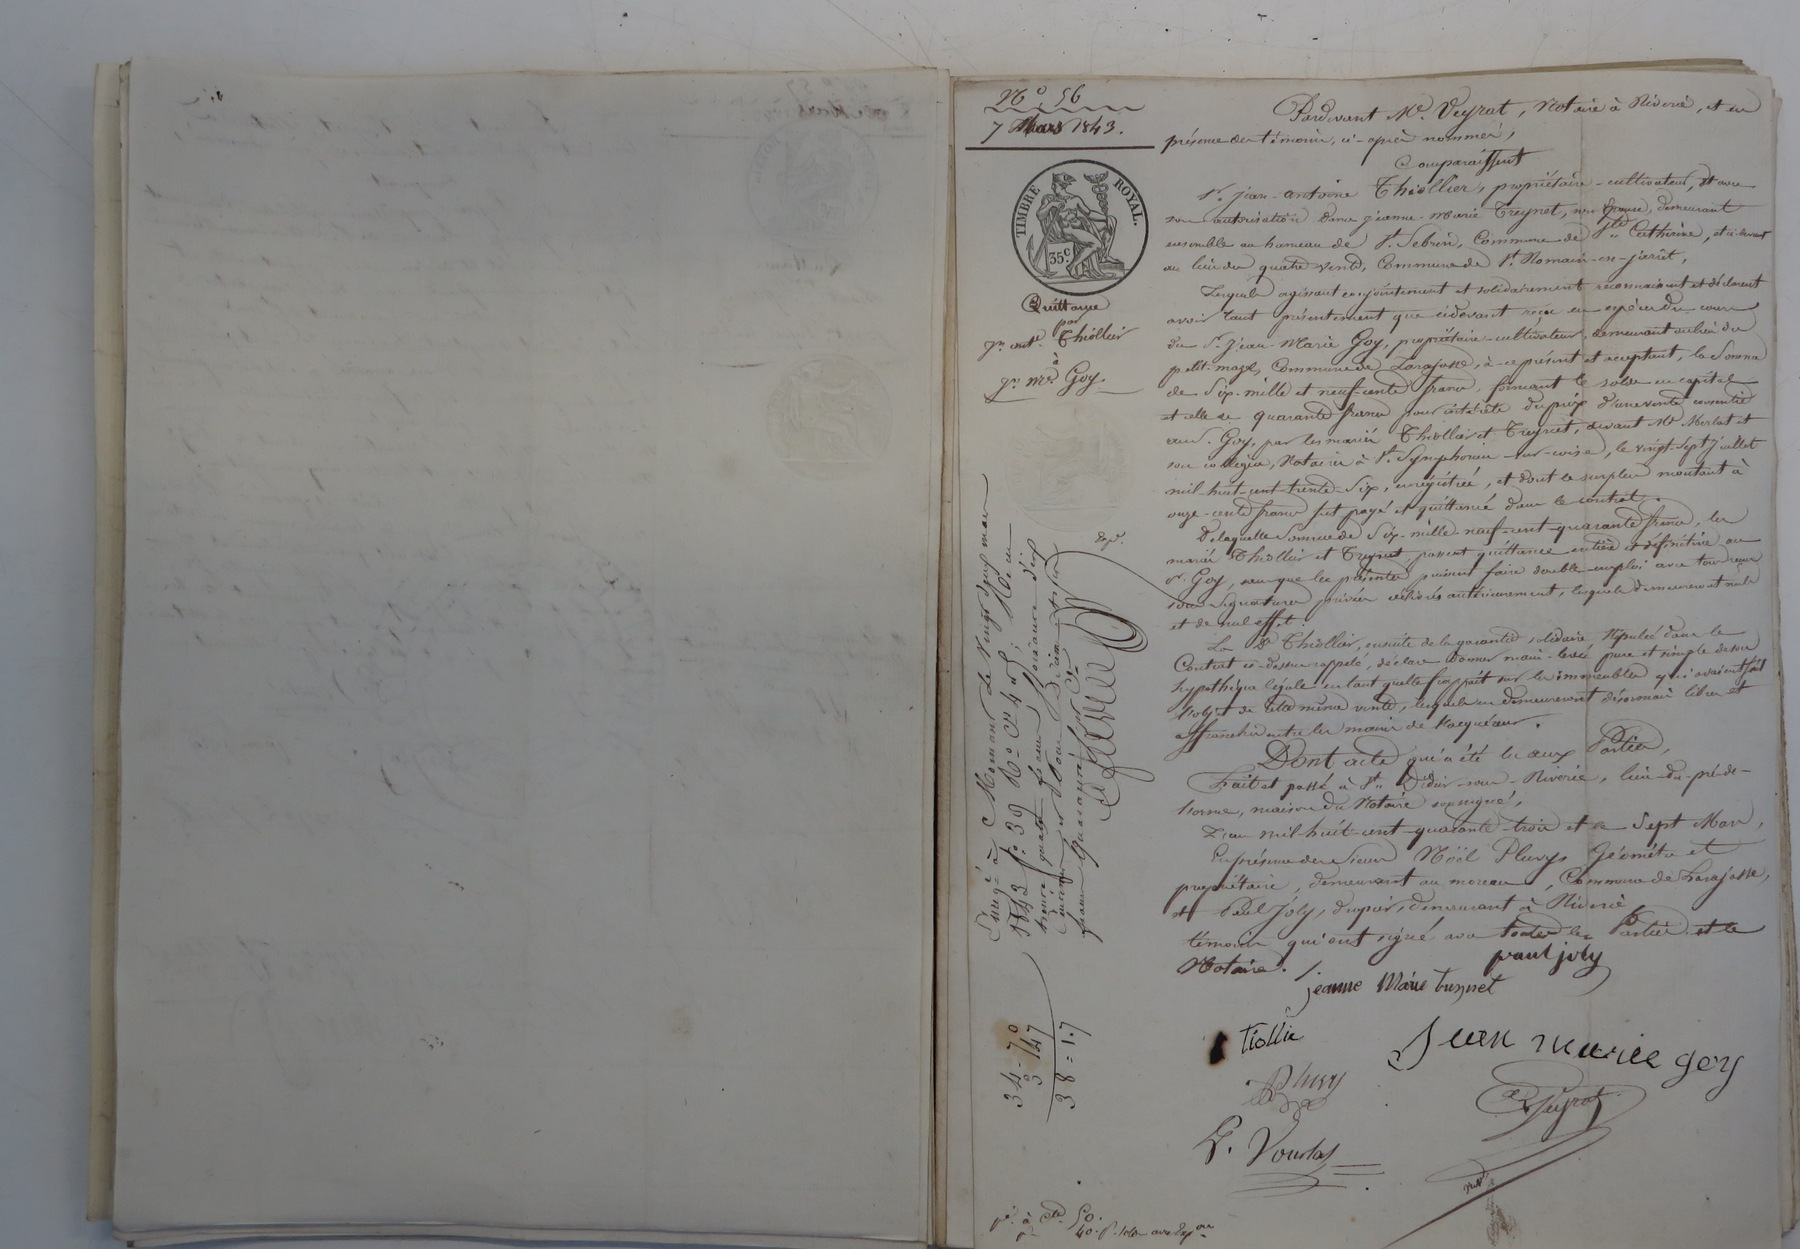 N° 56
7 Mars 1843.
TIMBRE ROYAL.
35 c.
Quittance
par
Jn. ant. Thiollier
à
Jn. Mie. Goy.
Pardevant Me. Veyrat, Notaire à Riverie, et en
présence des témoins, ci-après nommés,
Comparaissent
Sr. jean-antoine Thiollier, propriétaire-cultivateur, et avec
son autorisation Dame jeanne-marie Treynet, son épouse, demeurant
ensemble au hameau de St. Sebrin, Commune de Ste. Catherine, et ci-devant
au lieu des quatre vents, Commune de St. Romain-en-jarrêt,
Lesquels agissant conjointement et solidairement reconnaissent et déclarent
avoir tant présentement que cidevant reçu en espèces du cours
du Sr. Jean-Marie Goy, propriétaire-cultivateur, demeurant au lieu du
petit-mazel, Commune de Larajasse, à ce présent et acceptant, la Somme
de Six-mille et neuf-cents francs, formant le solde en capital
et celle de quarante francs pour intérêts du prix d'une vente consentie
au Sr. Goy, par les mariés Thiollier et Treynet, devant Me Merlat et
son collègue, Notaires à St. Symphorien-sur-coise, le vingt-Sept juillet
mil-huit-cent-trente-Six, enrégistrée, et dont le surplus montant à
onze-cents francs fut payé et quittancé dans le contrat.
De laquelle Somme de Six-mille-neuf-cent-quarante francs, les
mariés Thiollier et Treynet, passent quittance entière et définitive au
Sr. Goy, sans que les présentes puissent faire double-emploi avec tous reçus
sous signatures privées délivrés antérieurement, lesquels demeureront nuls
et de nul effet.
La De Thiollier, ensuite de la garantie solidaire stipulée dans le
Contrat ci-dessus rappelé, déclare donner main-levée pure et simple de son
hypothèque légale en tant quelle frappait sur les immeubles qui avaient fait
l'objet de cette même vente, lesquels en demeureront désormais libres et
affranchis entre les mains de l'acquéreur.
Dont acte qui a été lu aux Parties,
Fait et passé à St. Didier-sous-Riverie, lieu-du-pré-de-
lorme, maison du Notaire soussigné,
L'an mil-huit-cent-quarante-trois et le Sept Mars,
En présence des Sieurs Noël Pluvy, Géomètre et
propriétaire, demeurant au moreau, Commune de Larajasse,
et Paul Joly, drapier, demeurant à Riverie
témoins qui ont signé avec toutes les Parties et le
Notaire.
paul joly
jeanne Marie treynet
tiollie
Jean marie goy
Pluvy
Veyrat
Enregé à Mornant le vingt mars
1843 fo. 39 Ro. Cn 4
34-70
3 47
38=17